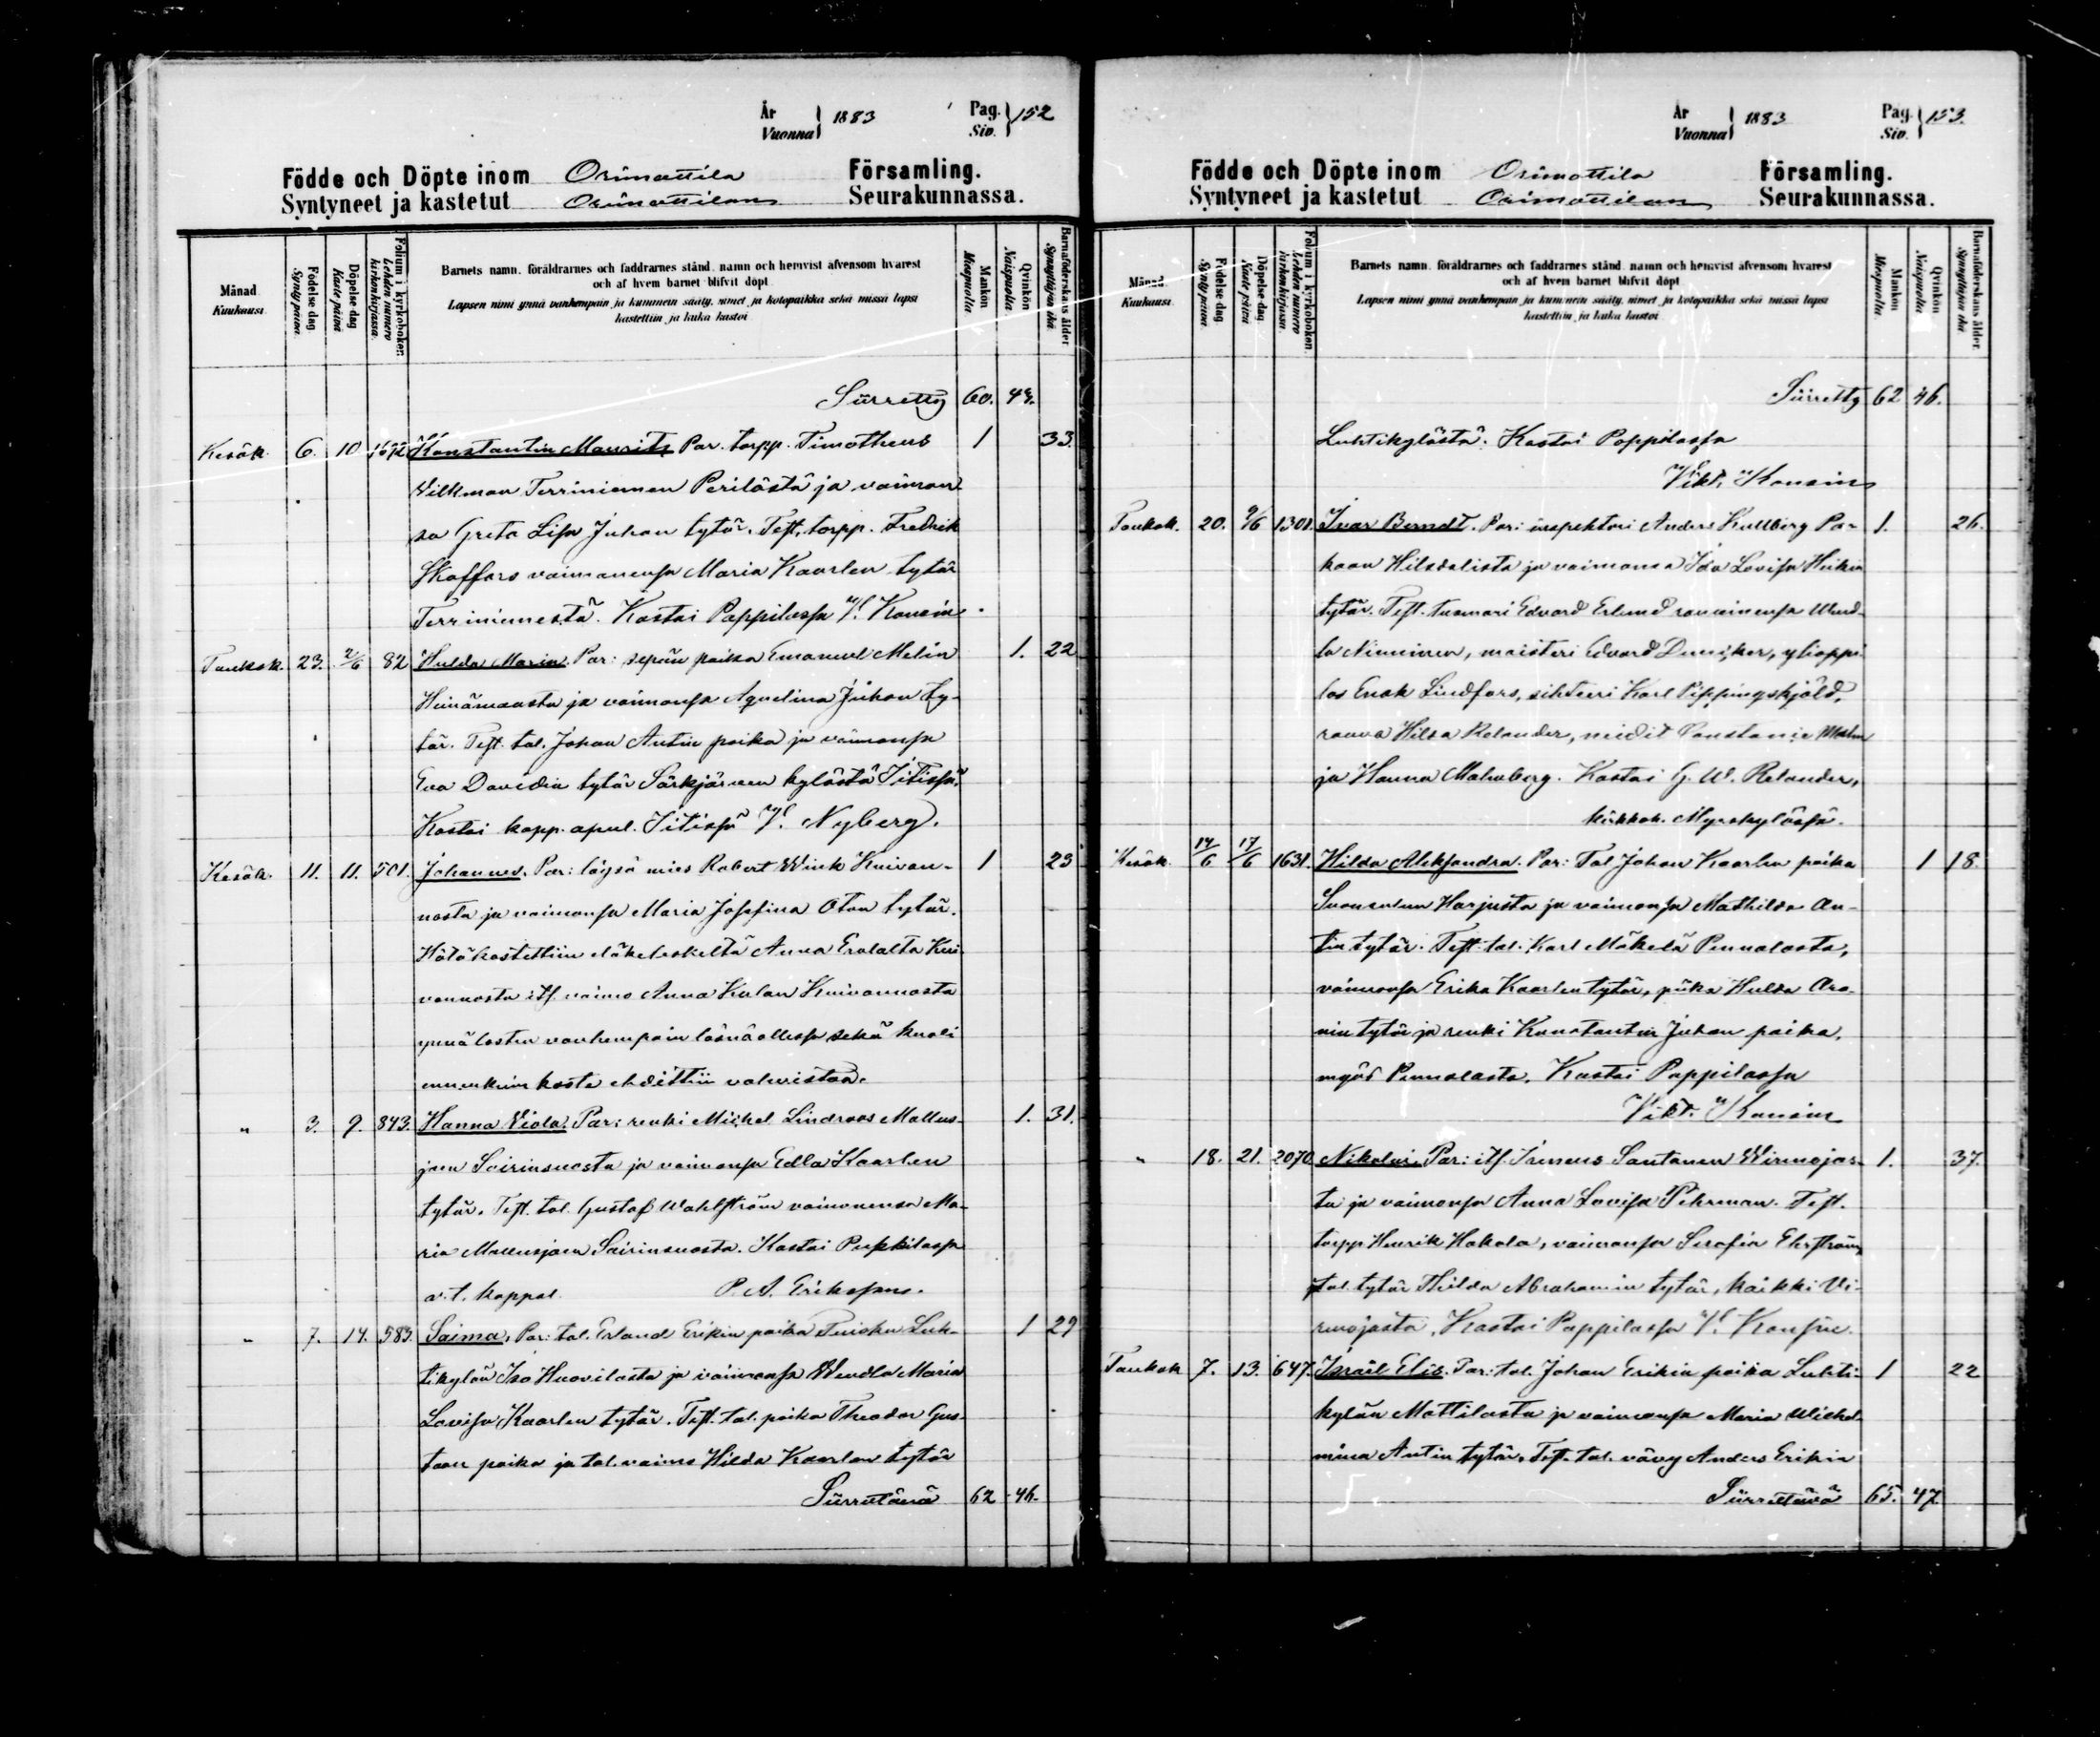 År
Vuonna } 1883
Pag.
Siv. } 152
Födde och Döpte inom Orimattila Församling.
Syntyneet ja kastetut Orimattilan Seurakunnassa.
Månad. Kuukausi.
Födelse dag. Synty päivä.
Döpelse dag. Kaste päivä.
Folium i kyrkoboken. Lehden numero kirkonkirjassa.
Barnets namn, föräldrarnes och faddrarnes stånd, namn och hemvist äfvensom hvarest
och af hvem barnet blifvit döpt
Lapsen nimi ynnä vanhempain ja kummein sääty, nimet ja kotopaikka sekä missä lapsi
kastettiin ja kuka kastoi
Mankön Miespuolta
Qvinkön Naispuolta
Barnaföderskans ålder Synnyttäjän ikä
Siirretty 60. 44.
Kesäk. 6. 10 1672 Konstantin Maurits Par. torpp. Timotheus 1 33.
Wilkman Terriniemen Perilästä ja vaimon
sa Greta Lisa Juhan tytär. Test. torpp. Fredrik
Skaffars vaimonensa Maria Kaarlen tytär
Terriniemestä. Kastoi Pappilassa V. Konsin.
Toukok. 23. 2/6 82 Hulda Maria. Par: sepän poika Emanuel Melin 1. 22
Heinämaasta ja vaimonsa Aqvelina Juhan ty-
tär. Test. tal. Johan Antin poika ja vaimonsa
Eva Davidin tytär Särkjärven kylästä Iitissä.
Kastoi kapp. apul. Iitissä V. Nyberg.
Kesäk. 11. 11. 501. Johannes. Par: löysä mies Robert Wink Kuivan- 1 23
nosta ja vaimonsa Maria Josefina Oton tytär.
Hätä kastettiin eläkeleskeltä Anna Eralalta Kui-
vannosta itt. vaimo Anna Kulan Kuivannosta
ynnä lasten vanhempain läsnäollessa sekä kuoli
ennenkuin kaste ehdittiin vahvistaa.
" 3. 9. 843. Hanna Viola. Par: renki Michel Lindroos Mallus- 1. 31.
joen Sairinsuosta ja vaimonsa Edla Kaarlen
tytär. Test. tal. Gustaf Wahlström vaimonensa Ma-
ria Mallusjoen Sairinsuosta. Kastoi Pappilassa
v. t. kappal. P. A. Eriksson.
" 7. 14. 583. Saima. Par: tal. Erland Erikin poika Tuisku Luh- 1 29
tikylän Iso Huovilasta ja vaimonsa Wendla Maria
Lovisa Kaarlen tytär. Test. tal. poika Theodor Gus-
taan poika ja tal. vaimo Hilda Kaarlen tytär
Siirrettävä 62 46.
År
Vuonna } 1883
Pag.
Siv. } 153.
Födde och Döpte inom Orimattila Församling.
Syntyneet ja kastetut Orimattilan Seurakunnassa.
Månad. Kuukausi.
Födelse dag Synty päivä
Döpelse dag Kaste päivä
Folium i kyrkoboken. Lehden numero kirkonkirjassa
Barnets namn, föräldrarnes och faddrarnes stånd, namn och hemvist äfvensom hvarest
och af hvem barnet blifvit döpt
Lapsen nimi ynnä vanhempain ja kummein sääty, nimet ja kotopaikka sekä missä lapsi
kastettiin ja kuka kastoi
Mankön Miespuolta
Qvinkön Naispuolta
Barnaföderskans ålder Synnyttäjän ikä
Siirretty 62 46.
Luhtikylästä. Kastoi Pappilassa
Vikt. Konsin
Toukok. 20. 9/6 1301. Ivar Berndt. Par: inspektori Anders Kullberg Pa- 1. 26.
kaan Hilsdalista ja vaimonsa Ida Lovisa Heikin
tytär. Test. tuomari Edvard Erlund rouvinensa Wend-
la Nieminen, maisteri Edvard Duncker, yliopp
las Enok Lindfors, sihteeri Karl Pippingskjöld,
rouva Hilda Relander, neidit Constance Malm
ja Hanna Malmberg. Kastoi G. W. Relander,
kirkkoh. Myrskylässä.
Kesäk. 14/6 17/6 1631. Hilda Aleksandra. Par: Tal. Johan Kaarlen poika 1 18.
Harjusta ja vaimonsa Mathilda An-
tin tytär. Test. tal. Karl Mäkelä Pennalasta,
vaimonsa Erika Kaarlen tytär, piika Hulda Aro-
nin tytär ja renki Konstantin Juhan poika,
myös Pennalasta. Kastoi Pappilassa
Vikt. Konsin
" 18. 21. 2070 Nikolai. Par: itt. Irineus Santanen Wirenojas- 1. 37.
ta ja vaimonsa Anna Lovisa Pehrman. Test.
torpp. Henrik Hakala, vaimonsa Serafia Ehrström,
tal. tytär Hilda Abrahamin tytär, kaikki Vi-
renojasta. Kastoi Pappilassa V. Konsin.
Toukok 7. 13. 647. Israël Elis. Par: tal. Johan Erikin poika Luhti- 1 22
kylän Mattilasta ja vaimonsa Maria Wilhel-
mina Antin tytär. Test. tal. vävy Anders Erikin
Siirrettävä 65. 47.